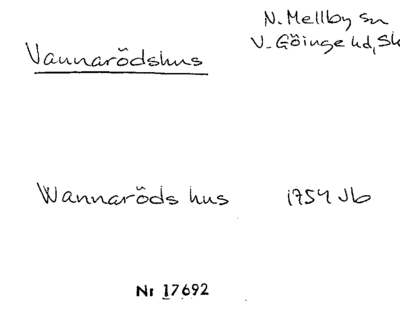 N. Mellby sn
V. Göinge hd, Sk
Vannarödshus
Wannaröds hus 1754 Jb
Nr 17692